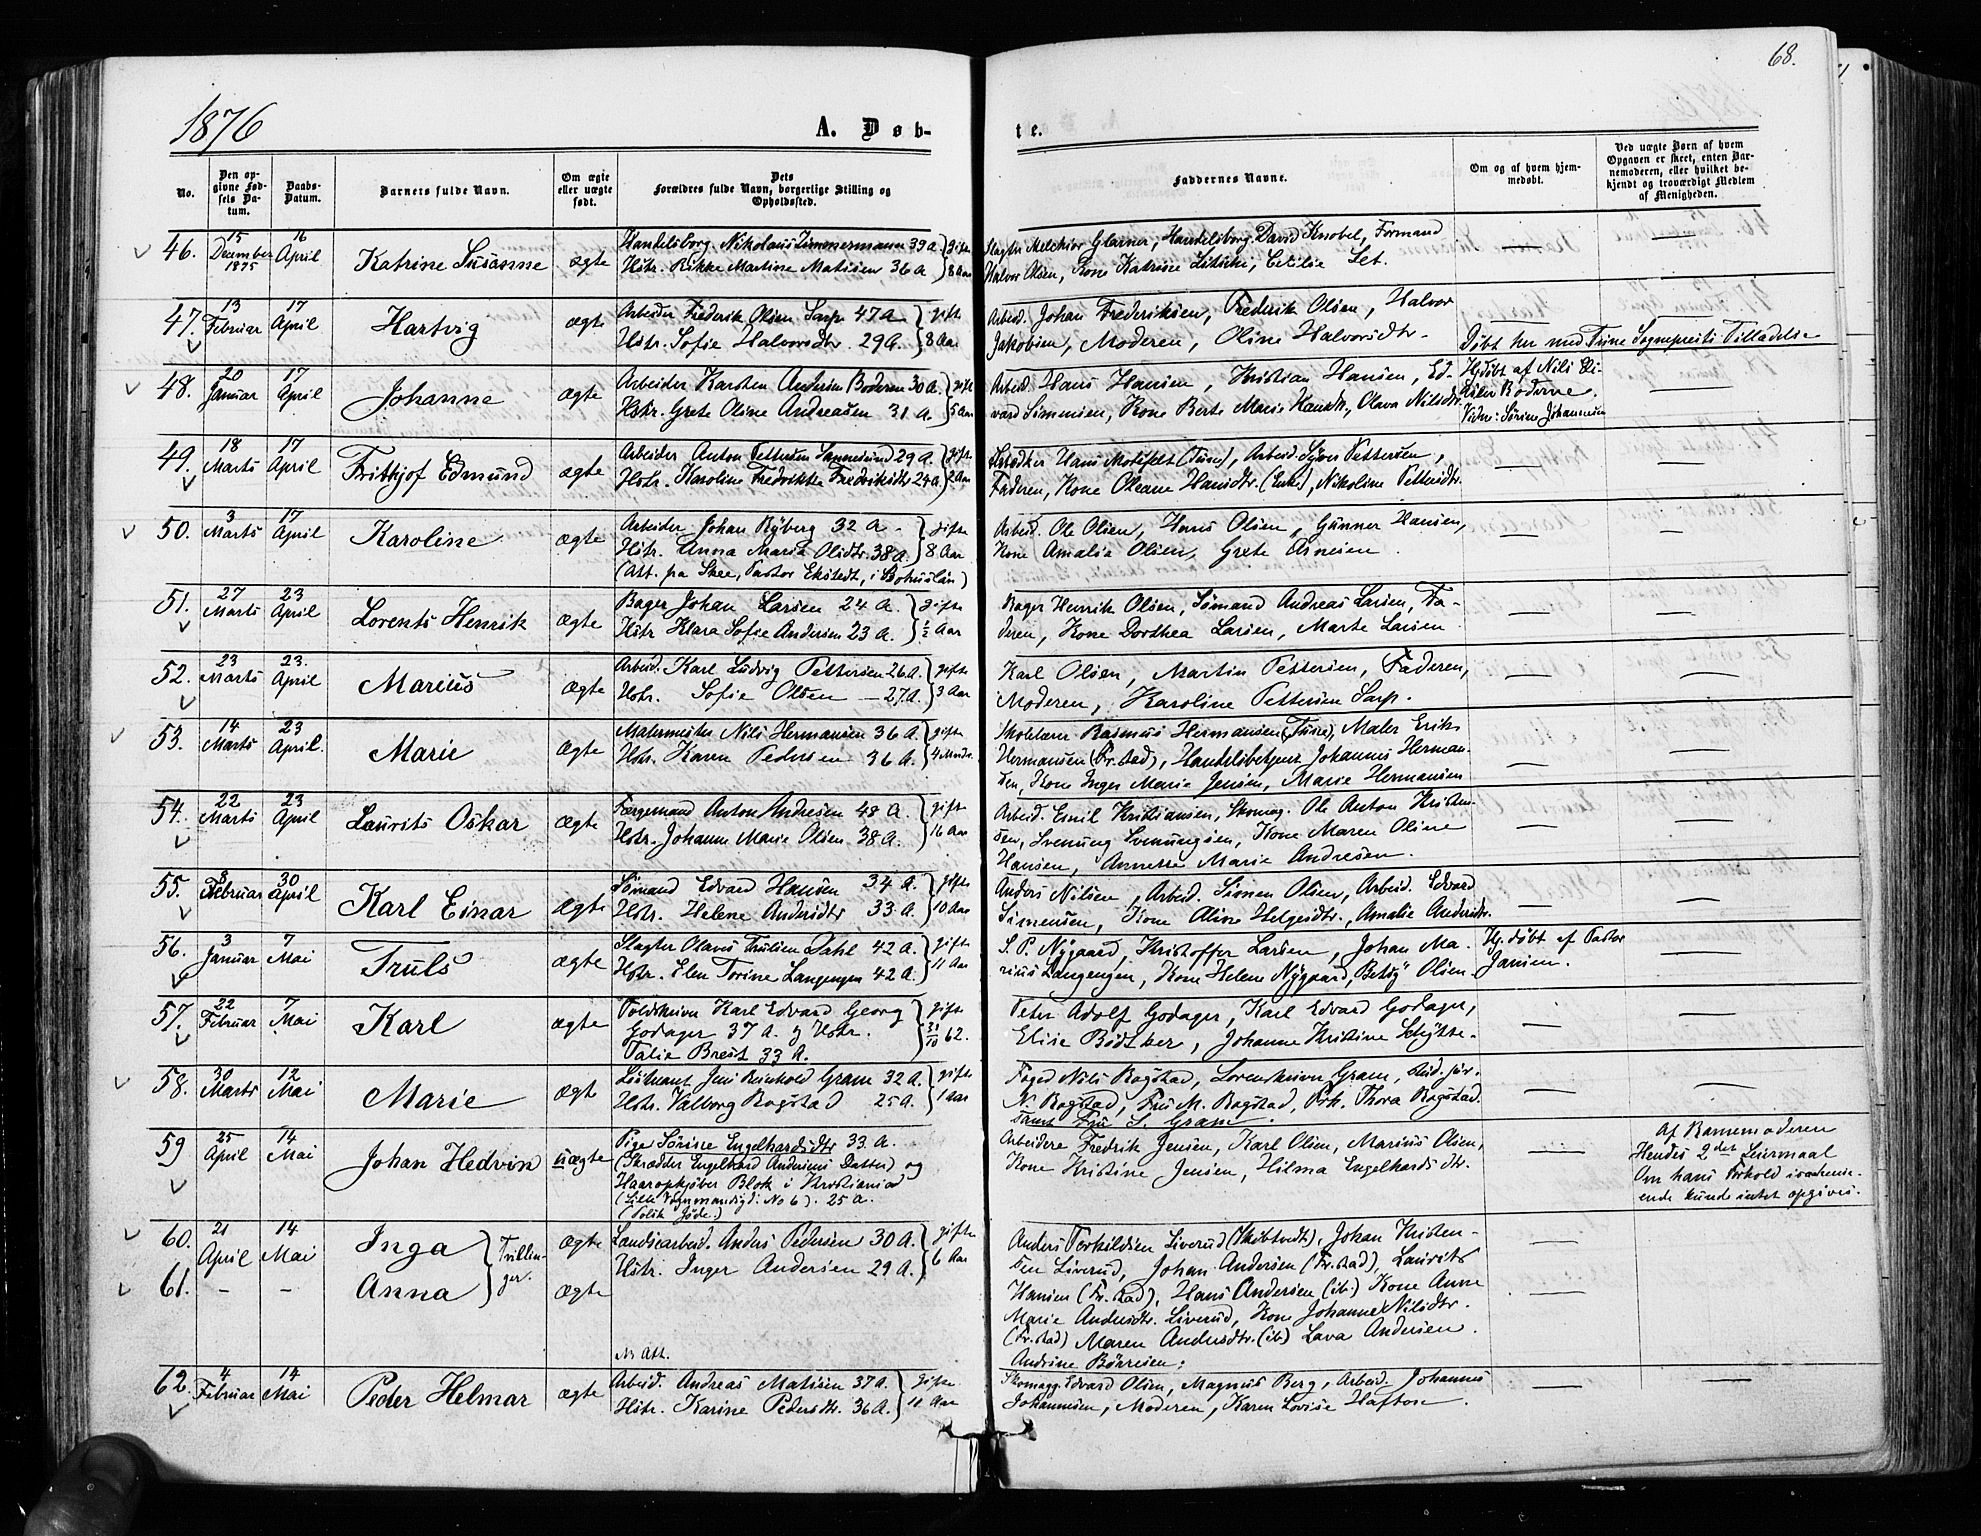 68.
1876
A. Døb-
te.
No.
Den op-
givne Fød-
sels Da-
tum.
Daabs-
Datum.
Barnets fulde Navn.
Om ægte
eller uægte
født.
Dets
Forældres fulde Navn, borgerlige Stilling og
Opholdssted.
Faddernes Navne.
Om og af hvem hjem-
medøbt.
Ved uægte Børn af hvem
Opgaven er skeet, enten Bar-
nemoderen, eller hvilket be-
kjendt og troværdigt Medlem
af Menigheden.
46. 15 December 1875 16 April Katrine Susanne ægte
Handelsborg. Nikolaus Zimmermann 39 A. gifte
Hstr. Rikke Martine Matisen 36 A. 8 Aar
Slagter Melchior Glarner, Handelsborg. David Knobel, Formand
Halvor Olsen, Kone Katrine Cecilie
47. 13 Februar 17 April Hartvig ægte
Arbeider Frederik Olsen Sarp 47 A. gifte
Hstr. Sofie Halvorsdtr. 29 A. 8 Aar
Arbeid. Johan Frederiksen, Frederik Olsen, Halvor
Jakobsen, Moderen, Oline Halvorsdtr. Døbt her med Tune Sognepræsts Tilladelse
48. 20 Januar 17 April Johanne ægte
Arbeider Karsten Andersen Boderne 30 A. gifte
Hstr. Grete Oline Andreasen 31 A. 5 Aar
Arbeid. Hans Hansen, Kristian Hansen, Ed-
vard Simensen, Kone Berte Marie Hansdtr., Olava Nilsdtr.
Hj.døbt af Nils
Boderne.
Vidne: Sørine Johannesen
49. 18 Marts 17 April Frithjof Edmund ægte
Arbeider Anton Pettersen Sannesund 29 A. gifte
Hstr. Karoline Fredrikke Fredriksdtr 24 A. 2 Aar
Hans (Tune), Arbeid. Syver Pettersen,
Faderen, Kone Oleane Hansdtr. (Enke), Nikoline Pettersdtr.
50. 3 Marts 17 April Karoline ægte
Arbeider Johan Ryberg 32 A. gifte
Hstr. Anna Maria Olsdtr. 38 A. 8 Aar
(Att. fra Skee, Pastor Ekstedt, i Bohuslän)
Arbeid. Ole Olsen, Hans Olsen, Gunner Hansen,
Kone Amalia Olsen, Grete Arnesen.
51. 27 Marts 23 April Lorents Henrik ægte
Bager Johan Larsen 24 A. gifte
Hstr Klara Sofie Andersen 23 A. ½ Aar
Bager Henrik Olsen, Sømand Andreas Larsen, Fa-
deren, Kone Dorthea Larsen, Marte Larsen
52. 23 Marts 23. April Marius ægte
Arbeid. Karl Ludvig Pettersen 26 A. gifte
Hstr. Sofie Olsen — 27 A. 3 Aar
Karl Olsen, Martin Pettersen, Faderen,
Moderen, Karoline Pettersen Sarp.
53. 14 Marts 23 April. Marie ægte
Malermester Nils Hermansen 36 A. gifte
Hstr. Karen Pedersen 36 A. 4 Mndr.
Skolelærer Rasmus Hermansen (Tune), Maler Erik
Hermansen (Fr.stad), Handelsbetjent Johannes Herman-
sen, Kone Inger Marie Jensen, Marie Hermansen
54. 22 Marts 23 April Laurits Oskar ægte
Færgemand Anton Andresen 48 A. gifte
Hstr. Johanne Marie Olsen 38 A. 16 Aar
Arbeid. Emil Kristiansen, Skomag. Ole Anton Kristen-
sen, Svenung Svenungsen, Kone Maren Oline
Hansen, Annette Marie Andresen.
55. 8 Februar 30 April Karl Einar ægte
Sømand Edvard Hansen 34 A. gifte
Hstr. Helene Andersdtr 33 A. 10 Aar
Anders Nilsen, Arbeid. Simen Olsen, Arbeid. Edvard
Simensen, Kone Oline Helgesdtr., Amalie Andersdtr.
56. 3 Januar 7 Mai Truls ægte
Slagter Olavus Trulsen Dahl 42 A. gifte
Hstr. Elen Torine Langengen 42 A. 11 Aar
S. P. Nygaard, Kristoffer Larsen, Johan Ma-
rius Langengen, Kone Helene Nygaard, Betsy Olsen.
Hj. døbt af Pastor
Jansen.
57. 22 Februar 7 Mai Karl ægte
Toldskriver Karl Edvard Georg gifte
Godager 37 A. og Hstr. 31/10 62.
Talie Brest 33 A.
Peter Adolf Godager, Karl Edvard Godager,
Elise Bødtker, Johanne Kristine Schytte.
58. 30 Marts 12 Mai Marie ægte
Løitnant Jens Reinhold Gram 32 A. gifte
Hstr. Valborg Bogstad 25 A. 1 Aar
Foged Nils Bogstad, Sorenskriver Gram, Stud. jur.
N. Bogstad, Fru M. Bogstad, Frk. Thora Bogstad.
samt Fru S. Gram.
59 25 April 14 Mai Johan Hedvin uægte
Pige Sørine Engelhardsdtr 33 A.
(Skrædder Engelhard Andersens Datter) og
Haaropkjøber Blok i Kristiania
(Lille Vognmandsgd. No 6). 25 A.
(Polsk Jøde.)
Arbeidere Fredrik Jensen, Karl Olsen, Marius Olsen,
Kone Kristine Jensen, Hilma Engelhardsdtr.
Af Barnemoderen
Hendes 2det Leiermaal
Om hans Forhold
ende kunde intet opgives.
60. 21 April 14 Mai Inga Trillin- ægte
61. - - Anna ger. ægte
Landsarbeid. Anders Pedersen 30 A. gifte
Hstr. Inger Andersen 29 A. 6 Aar
Anders Torkildsen Liverud (Skibtvedt), Johan Kristen-
sen Liverud, Johan Andersen (Fr.stad), Laurits
Hansen (Fr.stad), Hans Andersen (ib.) Kone Anne
Marie Andersdtr. Liverud, Kone Johanne Nilsdtr.
(Fr.stad) Maren Andersdtr. (ib.) Lava Andersen
Andrine Børresen.
Att.
62. 4 Februar 14 Mai Peder Helmar ægte
Arbeid. Andreas Matisen 37 A. gifte
Hstr. Karine Pedersdtr. 36 A. 11 Aar
Skomag. Edvard Olsen, Magnus Berg, Arbeid. Johannes
Johannesen, Moderen, Karen Lovise Haftorn.